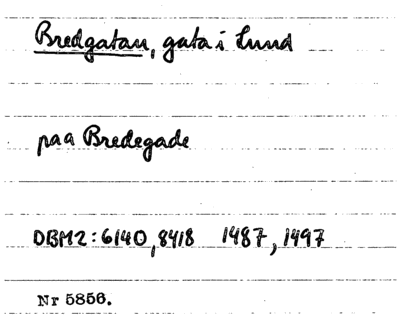 Bredgatan, gata i Lund
paa Bredegade
DBM2:6140, 8418 1487, 1497
Nr 5856.